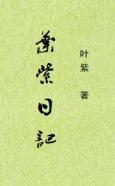 葉紫日記
叶紫 著